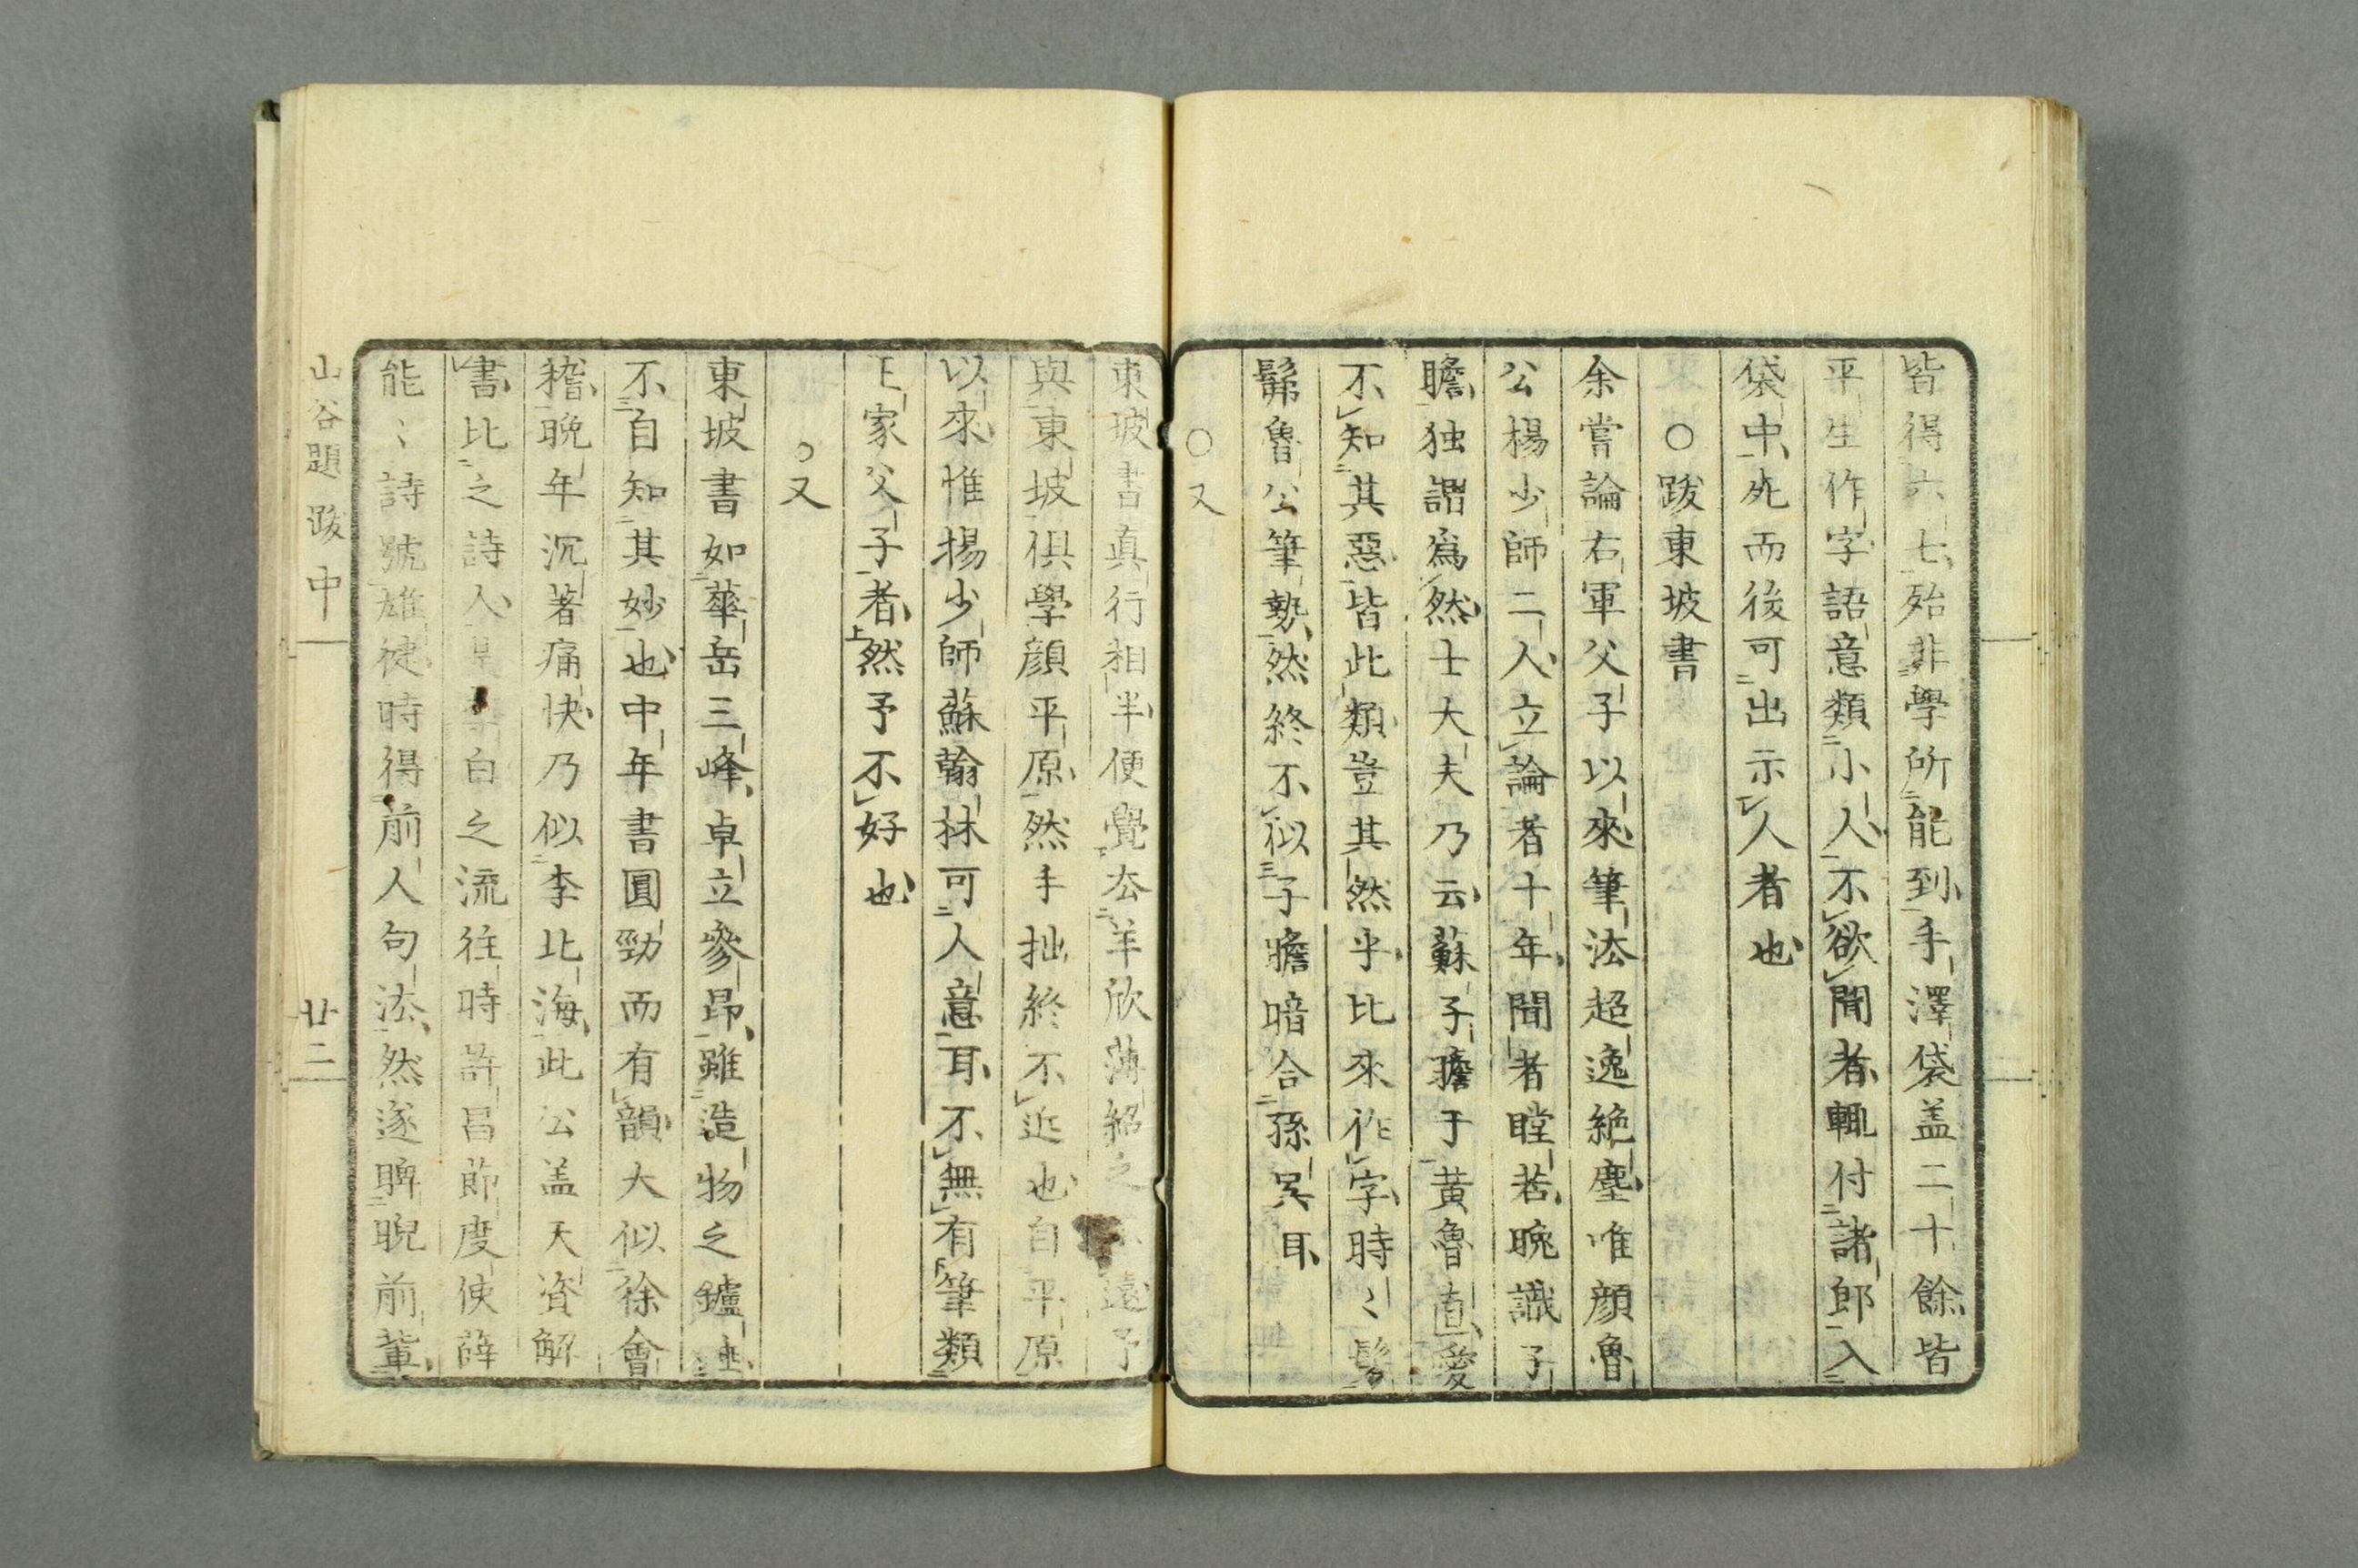 皆得六七殆非學所能到手澤袋盖二十餘皆
平生作字語意類小人不欲聞者輙付諸郎入
袋中死而後可出示人者也
○跋東坡書
余嘗論右軍父子以來筆法超逸絶塵唯顔魯
公楊少師二人立論者十年聞者瞠若晩識子
瞻独謂爲然士大夫乃云蘇子瞻于黄魯直愛
不知其惡皆此類豈其然乎比來作字時〻髣
髴魯公筆勢然終不似子瞻暗合孫吴耳
○又
東坡書真行相半便覺去羊欣薄紹之不遠予
與東坡俱學顔平原然手拙終不近也自平原
以來惟楊少師蘇翰林可人意耳不無有筆類
王家父子者然予不好也
○又
東坡書如華岳三峰卓立參昴雖造物之鑪錘
不自知其妙也中年書圓勁而有韻大似徐會
稽晩年沉著痛快乃似李北海此公盖天資解
書比之詩人是李白之流往時許昌節度使薛
能〻詩號雄徤時得前人句法然遂睥睨前輩
山谷題跋中
廿二